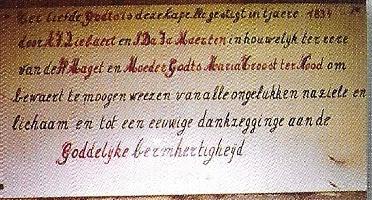 Ter liefde Godts is deze kapel gestigt in tjaere 1834
door A.F. Liebaert en J. Da Ja Maerten in houwelyk ter eere
van de H Maget en Moeder Godts Maria Troost ter Nood om
bewaert te moogen weezen van alle ongelukken na ziele en
lichaam en tot een eeuwige dankzegginge aan de
Goddelyke bermhertigheyd